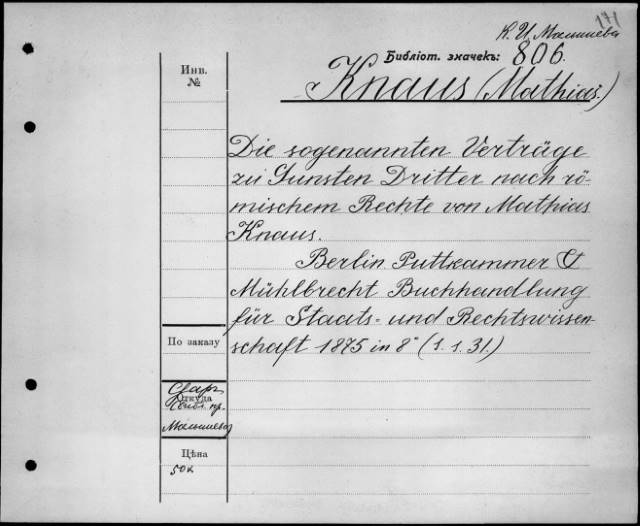 171
К. И. Малышева
Библіот. значекъ: 806.
Knaus (Mathias.)
Инв.
№
Die sogenannten Verträge
zu Gunsten Dritter nach rö-
mischem Rechte von Mathias
Knaus.
Berlin Puttkammer &
Mühlbrecht Buchhandlung
für Staats- und Rechtswissen-
schaft 1875 in 8° (1. 1. 31.)
По заказу
Откуда
Малышева
Цѣна
50к